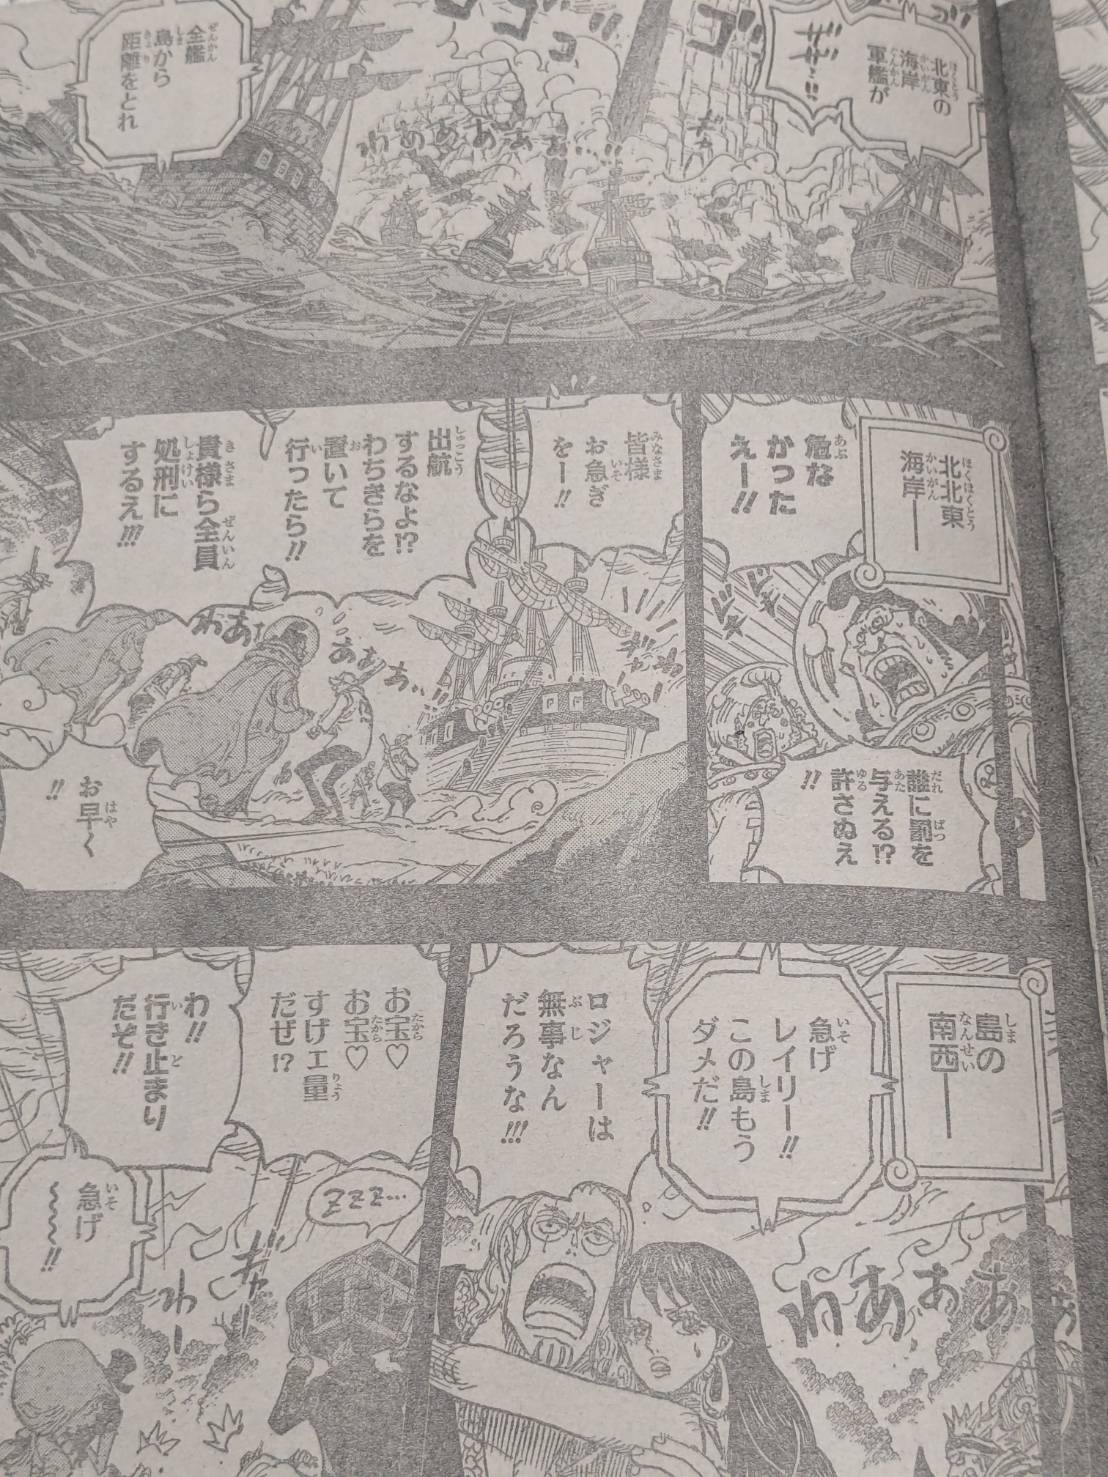 北東の
海岸
軍艦が
ギギ…!!
全艦
島から
距離をとれ
ゴゴ
ゴゴゴ
わあああぁぁ…!!
北北東
海岸―
危な
かった
えー!!
誰に罰を
与える!?
許さぬえ
!!
皆様
お急ぎ
をー!!
出航
するなよ!?
わちきらを
置いて
行ったら!!
貴様ら全員
処刑に
するえ!!!
わあぁ
お早く
!!
島の
南西―
急げ
レイリー!!
この島もう
ダメだ!!
ロジャーは
無事なん
だろうな!!!
わあああ
お宝♡
お宝♡
すげェ量
だぜ!?
ZZZ…
わ!!
行き止まり
だぞ!!
ギャー
わー
急げ
〜〜〜!!